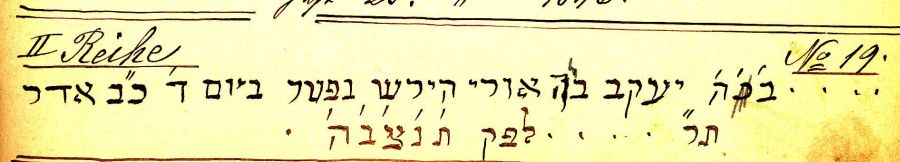 II Reihe
No 19.
. . . . ב׳כ׳ה׳ יעקב ב״ה אורי הירש נפטר ביום ד׳ כ״ב אדר
תר״ . . . . . לפק ת׳נ׳צ׳ב׳ה׳ .